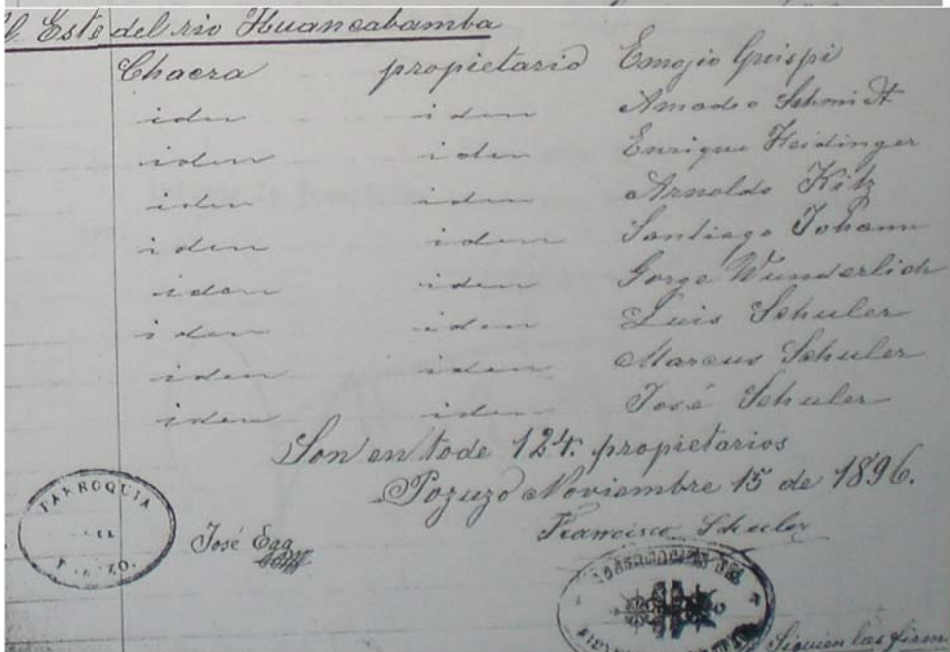 Este del rio Huancabamba
Chacra propietario Quispi
iden iden Amado Schmidt
iden iden Enrique Heidinger
iden iden Arnoldo Kitz
iden iden Santiago Johann
iden iden Jorge Wunderlich
iden iden Luis Schuler
iden iden Marcus Schuler
iden iden José Schuler
Son en tode 124. propietarios
Pozuzo Noviembre 15 de 1896.
PARROQUIA
José Egg
Francisco Schuler
Siguien las firm